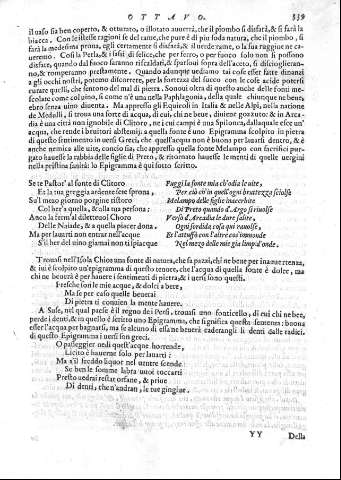 OTTAVO. 339
il uaso sia ben coperto, & otturato, o illotato auuerrà, che il piombo si disfarà, & si farà la
biacca. Con le istesse ragioni se del rame, che pure è di piu soda natura, che il piombo, si
farà la medesima proua, egli certamente si disfarà, & il uerderame, o la sua ruggine ne ca-
ueremo. Così la Perla, & i sassi di selice, che per ferro, o per fuoco solo non si possono
disfare, quando dal fuoco saranno riscaldati, & sparsoui sopra dell'aceto, si discioglieran-
no, & romperanno prestamente. Quando adunque uediamo tai cose esser fatte dinanzi
a gli occhi nostri, potemo discorrere, per la fortezza del succo con le cose acide potersi
curare quelli, che sentono del mal di pietra. Sonoui oltra di questo anche delle fonti me-
scolate come col uino, si come n'è una nella Paphlagonia, della quale chiunque ne beue,
ebro senza uino diuenta. Ma appresso gli Equicoli in Italia & nelle Alpi, nella natione
de Medulli, si troua una sorte di acqua, di cui, chi ne beue, diuiene gozzuto: & in Arca-
dia è una città non ignobile di Clitoro, ne i cui campi è una spilonca, dallaquale esce un'
acqua, che rende i beuitori abstemij. a quella fonte è uno Epigramma scolpito in pietra
di questo sentimento in uersi Greci, che quell'acqua non è buona per lauarsi dentro, & è
anche nemica alle uite, concio sia, che appresso quella fonte Melampo con sacrificij pur-
gato hauesse la rabbia delle figlie di Preto, & ritornato hauesse le menti di quelle uergini
nella pristina sanità: lo Epigramma è qui sotto scritto.
Se te Pastor' al fonte di Clitoro
Et la tua greggia ardente sete sprona,
Su'l mezo giorno porgine ristoro
Col ber'a quella, & alla tua persona:
Anco la ferm' al diletteuol Choro
Delle Naiade, & a quella piacer dona.
Ma per lauarti non entrar nell'acque
S'il ber del uino giamai non ti spiacque
Fuggi la fonte mia ch'odia le uite,
Per ciò ch'in quella ogni bruttezza sciolse
Melampo delle figlie inacerbite
Di Preto quando d'Argo si riuolse
Verso d'Arcadia le dure salite,
Ogni sordida cosa qui rauolse,
Et l'attuffò con l'altre cose immonde
Nel mezo delle mie gia limpid'onde.
Trouasi nell'Isola Chio una fonte di natura, che fa pazzi, chi ne beue per inauuertenza,
& iui è scolpito un'epigramma di questo tenore, che l'acqua di quella fonte è dolce, ma
chi ne beuerà è per hauere i sentimenti di pietra, & i uersi sono questi.
Fresche son le mie acque, & dolci a bere,
Ma se per caso quelle beuerai
Di pietra ti conuien la mente hauere.
A Suse, nel qual paese è il regno dei Persi, trouasi uno fonticello, di cui chi ne bee,
perde i denti, & in quello è scritto uno Epigramma, che significa questa sentenza: buona
esser l'acqua per bagnarsi, ma se alcuno di essa ne beuerà caderangli li denti dalle radici.
di questo Epigramma i uersi son greci.
O passeggier uedi quest'acque horrende,
Licito è hauerne solo per lauarti:
Ma s'il freddo liquor nel uentre scende
Se ben le somme labra uuoi toccarti
Presto uedrai restar orfane, & priue
Di denti, ch'en'andran, le tue gingiue.
YY Della